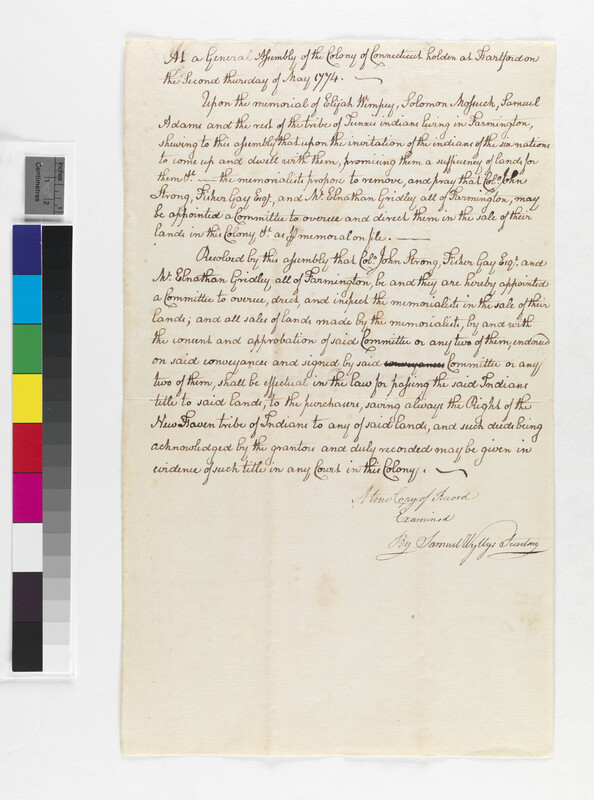 At a General Assembly of the Colony of Connecticut holden at Hartford on
the Second thursday of May 1774.
Upon the memorial of Elijah Wimpey, Solomon Mossuck, Samuel
Adams and the rest of the tribe of Tunxis indians living in Farmington,
shewing to this assembly that upon the invitation of the indians of the six nations
to come up and dwell with them, promising them a sufficiency of lands for
them &c. — the memorialists propose to remove, and pray that Colo. John
Strong, Fisher Gay Esqr., and Mr. Elnathan Gridley all of Farmington, may
be appointed a Committee to oversee and direct them in the sale of their
lands in this Colony &c. as per memorial on file. —
Resolved by this assembly that Colo. John Strong, Fisher Gay Esqr. and
Mr. Elnathan Gridley all of Farmington, be and they are hereby appointed
a Committee to oversee, direct, and inspect the memorialists in the sale of their
lands; and all sales of lands made by the memorialists, by and with
the consent and approbation of said Committee or any two of them, endorsed
on said conveyances and signed by said conveyances Committee or any
two of them, shall be effectual in the law for passing the said Indians
title to said lands, to the purchasers, saving always the Right of the
New Haven tribe of Indians to any of said lands, and such deeds being
acknowledged by the grantors and duly recorded may be given in
evidence of such title in any Court in this Colony.
A true Copy of Record
Examined
By Samuel Wyllys Secretary
Inches
Centimetres